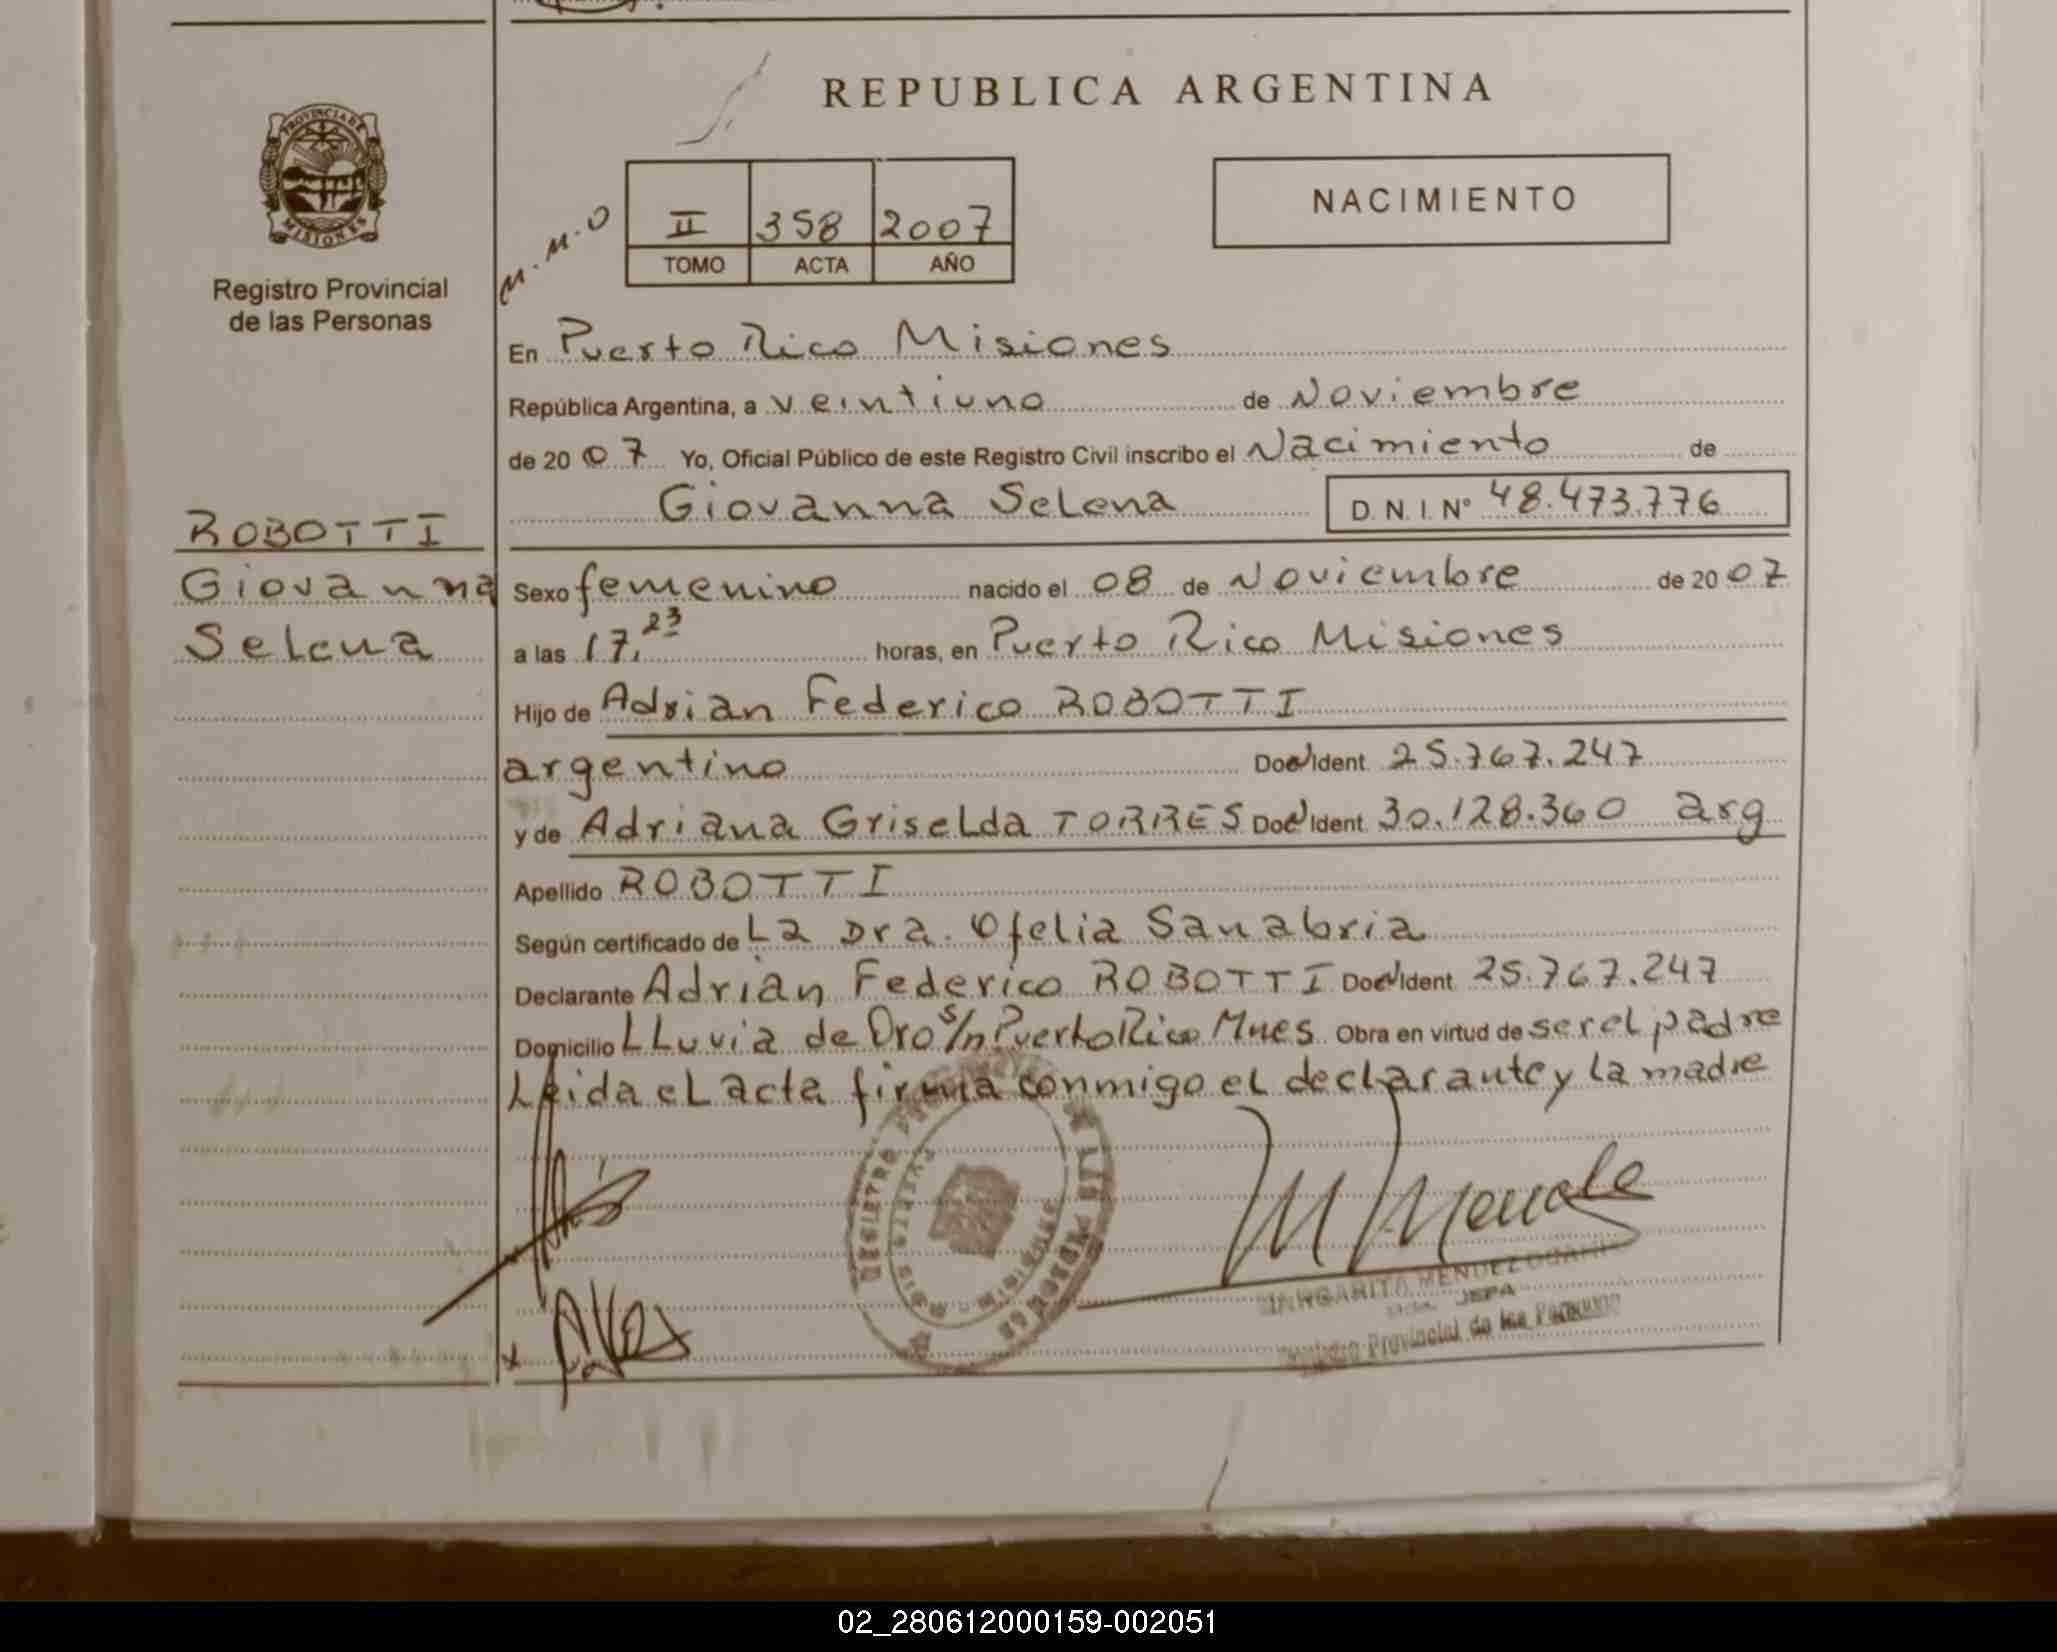 REPUBLICA ARGENTINA
PROVINCIA DE
MISIONES
Registro Provincial
de las Personas
M.M.O
II 358 2007
TOMO ACTA AÑO
NACIMIENTO
En Puerto Rico Misiones
República Argentina, a veintiuno de Noviembre
de 20 07 Yo, Oficial Público de este Registro Civil inscribo el Nacimiento de
Giovanna Selena D. N. I. Nº 48.473.776
ROBOTTI
Giovanna
Selena
Sexo femenino nacido el 08 de Noviembre de 20 07
a las 17,23 horas, en Puerto Rico Misiones
Hijo de Adrian Federico ROBOTTI
argentino Doc Ident. 25.767.247
y de Adriana Griselda TORRES Doc Ident. 30.128.360 arg
Apellido ROBOTTI
Según certificado de La Dra. Ofelia Sanabria
Declarante Adrian Federico ROBOTTI Doc Ident. 25.767.247
Domicilio LLuvia de Oro s/n Puerto Rico Mnes. Obra en virtud de ser el padre
Leida el acta firma conmigo el declarante y la madre
REGISTRO PROVINCIAL DE LAS PERSONAS
PUERTO RICO
MISIONES
MARGARITA MENDEZ
JEFA
Registro Provincial de las Personas
02_280612000159-002051